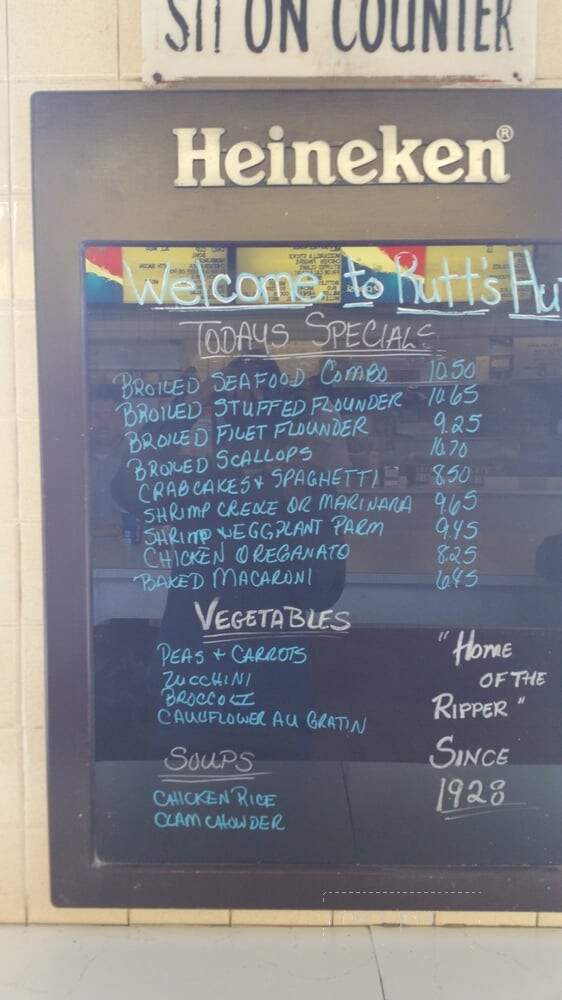 SIT ON COUNTER
Heineken®
Welcome to Rutt's Hu
TODAYS SPECIALS
BROILED SEAFOOD COMBO 10.50
BROILED STUFFED FLOUNDER 10.65
BROILED FILET FLOUNDER 9.25
BROILED SCALLOPS 10.70
CRABCAKES + SPAGHETTI 8.50
SHRIMP CREOLE OR MARINARA 9.65
SHRIMP + EGGPLANT PARM 9.45
CHICKEN OREGANATO 8.25
BAKED MACARONI 6.45
VEGETABLES
PEAS + CARROTS
ZUCCHINI
BROCCOLI
CAULIFLOWER AU GRATIN
"HOME
OF THE
RIPPER"
SINCE
1928
SOUPS
CHICKEN RICE
CLAM CHOWDER